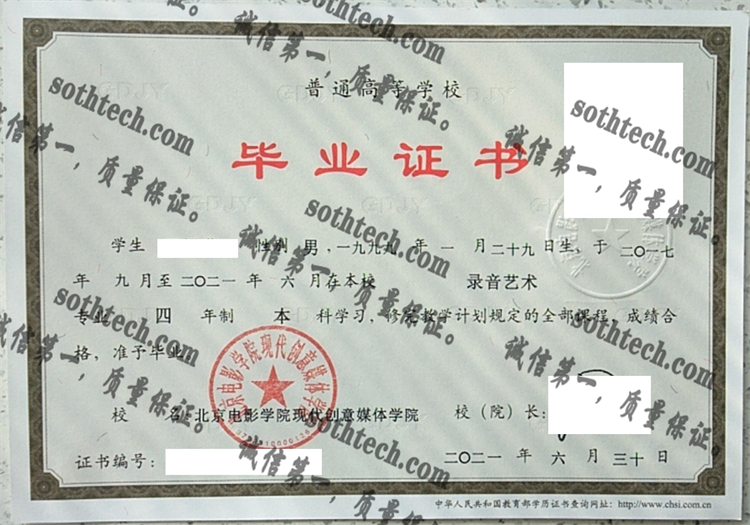 普通高等学校
毕业证书
学生 性别 男,一九九九 年 一 月 二十九 日生,于 二〇一七
年 九 月至 二〇二一 年 六 月在本校 录音艺术
专业 四 年制 本 科学习,修完教学计划规定的全部课程,成绩合
格,准予毕业。
北京电影学院现代创意媒体学院
校 名:北京电影学院现代创意媒体学院 校(院)长:
证书编号: 二〇二一 年 六 月 三十 日
中华人民共和国教育部学历证书查询网址:http://www.chsi.com.cn
sothtech.com
诚信第一,质量保证。
sothtech.com
诚信第一,质量保证。
sothtech.com
诚信第一,质量保证。
sothtech.com
诚信第一,质量保证。
sothtech.com
诚信第一,质量保证。
sothtech.com
诚信第一,质量保证。
sothtech.com
诚信第一,质量保证。